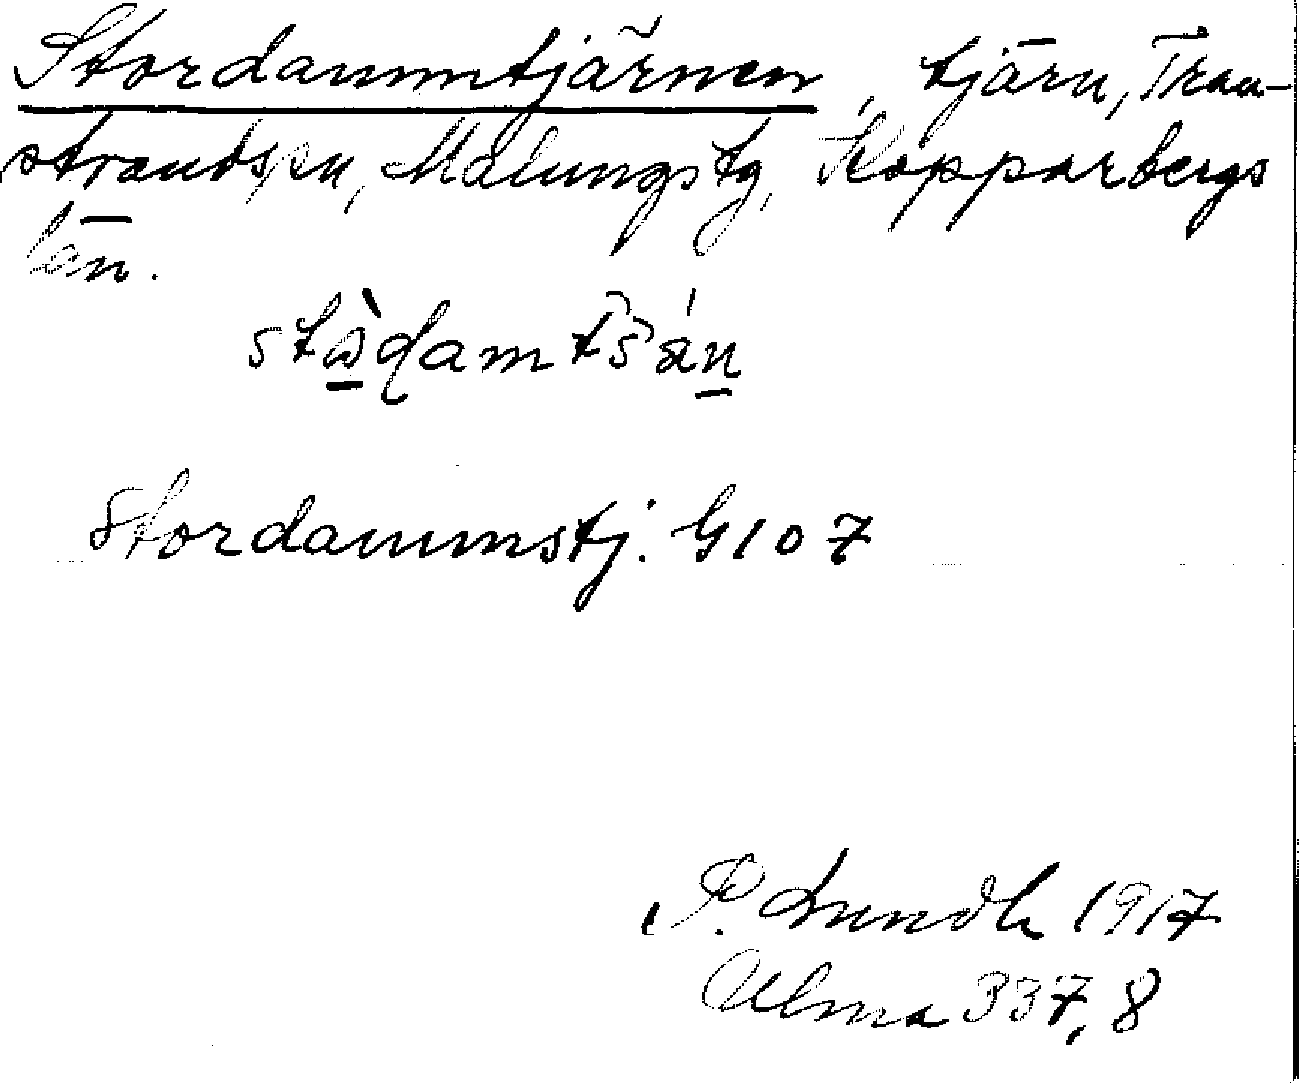 Stordammtjärnen, tjärn, Tran-
strands sn, Malungs tg, Kopparbergs
län.
Stordammstj. G107
P. Lundh 1917
Ulma 337,8